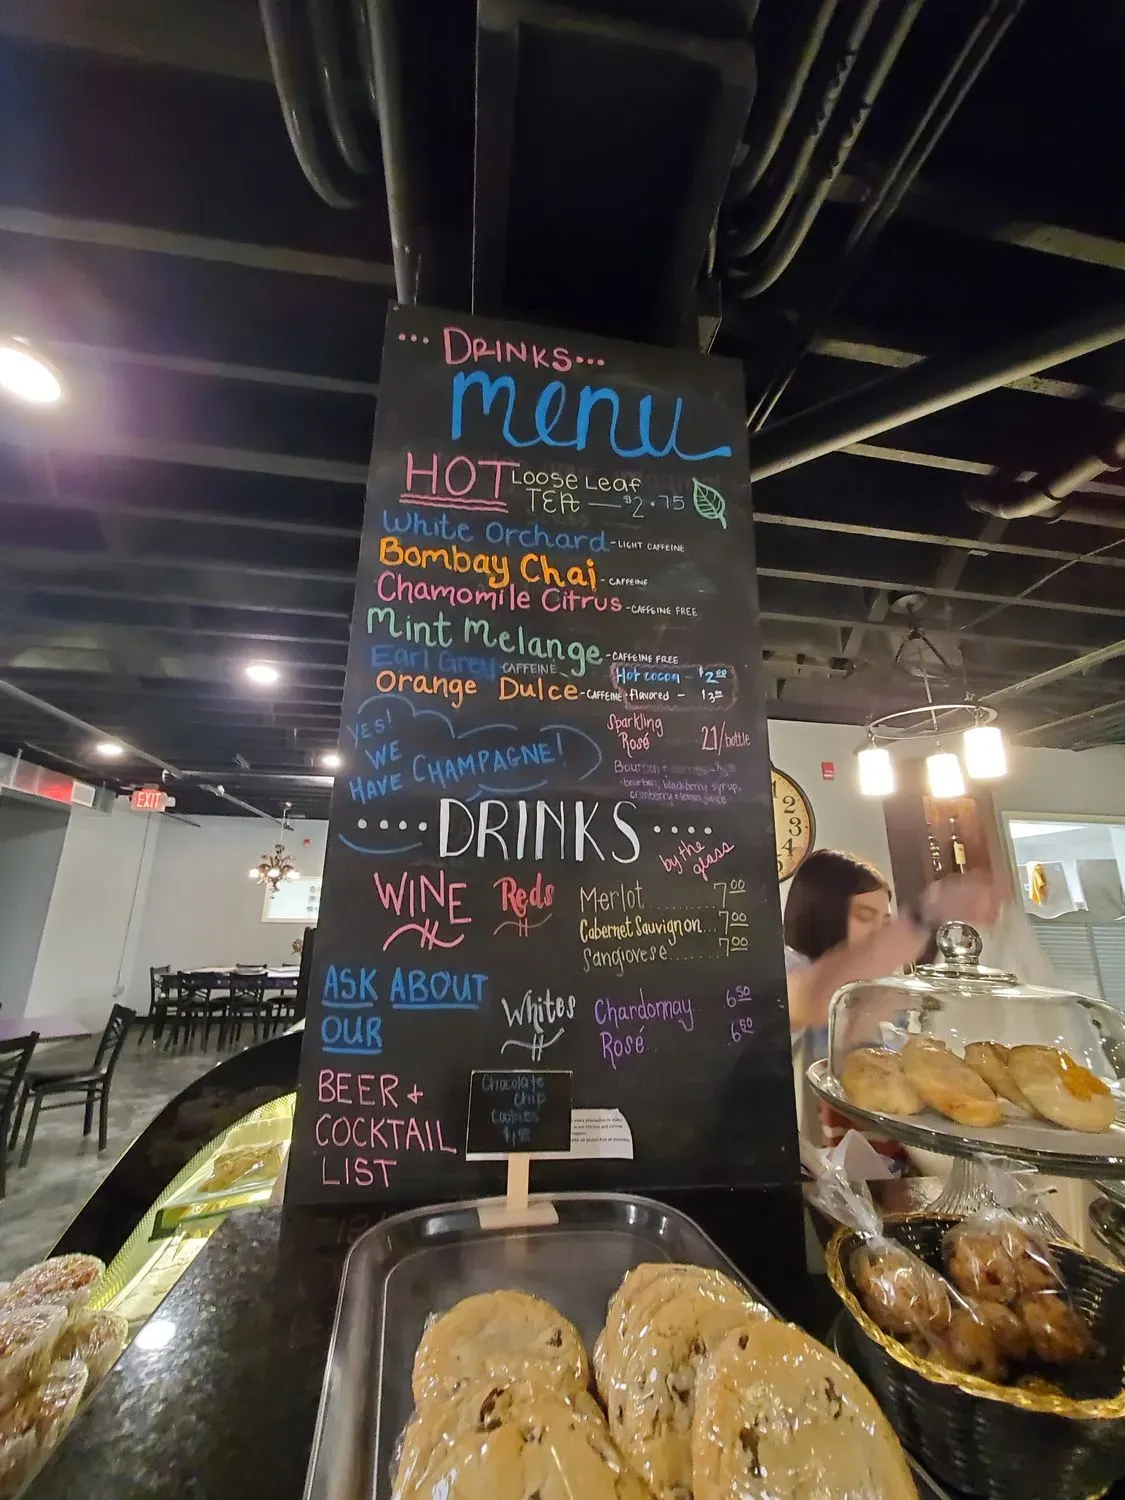 ... DRINKS ...
menu
HOT LOOSE LEAF
TEA — $2.75
White Orchard - LIGHT CAFFEINE
Bombay Chai - CAFFEINE
Chamomile Citrus - CAFFEINE FREE
Mint Melange - CAFFEINE FREE
Earl Grey - CAFFEINE
Orange Dulce - CAFFEINE
Hot cocoa - $2.00
flavored -
YES!
WE
HAVE CHAMPAGNE!
Sparkling
Rosé 21/bottle
Bourbon
-bourbon, blackberry syrup,
cranberry + lemon juice
.... DRINKS ....
by the
glass
WINE Reds
Merlot ........ 7.00
Cabernet Sauvignon... 7.00
Sangiovese ....... 7.00
ASK ABOUT
OUR
BEER +
COCKTAIL
LIST
Whites
Chardonnay .6.50
Rosé 6.50
Chocolate
Chip
Cookies
EXIT
2
3
4